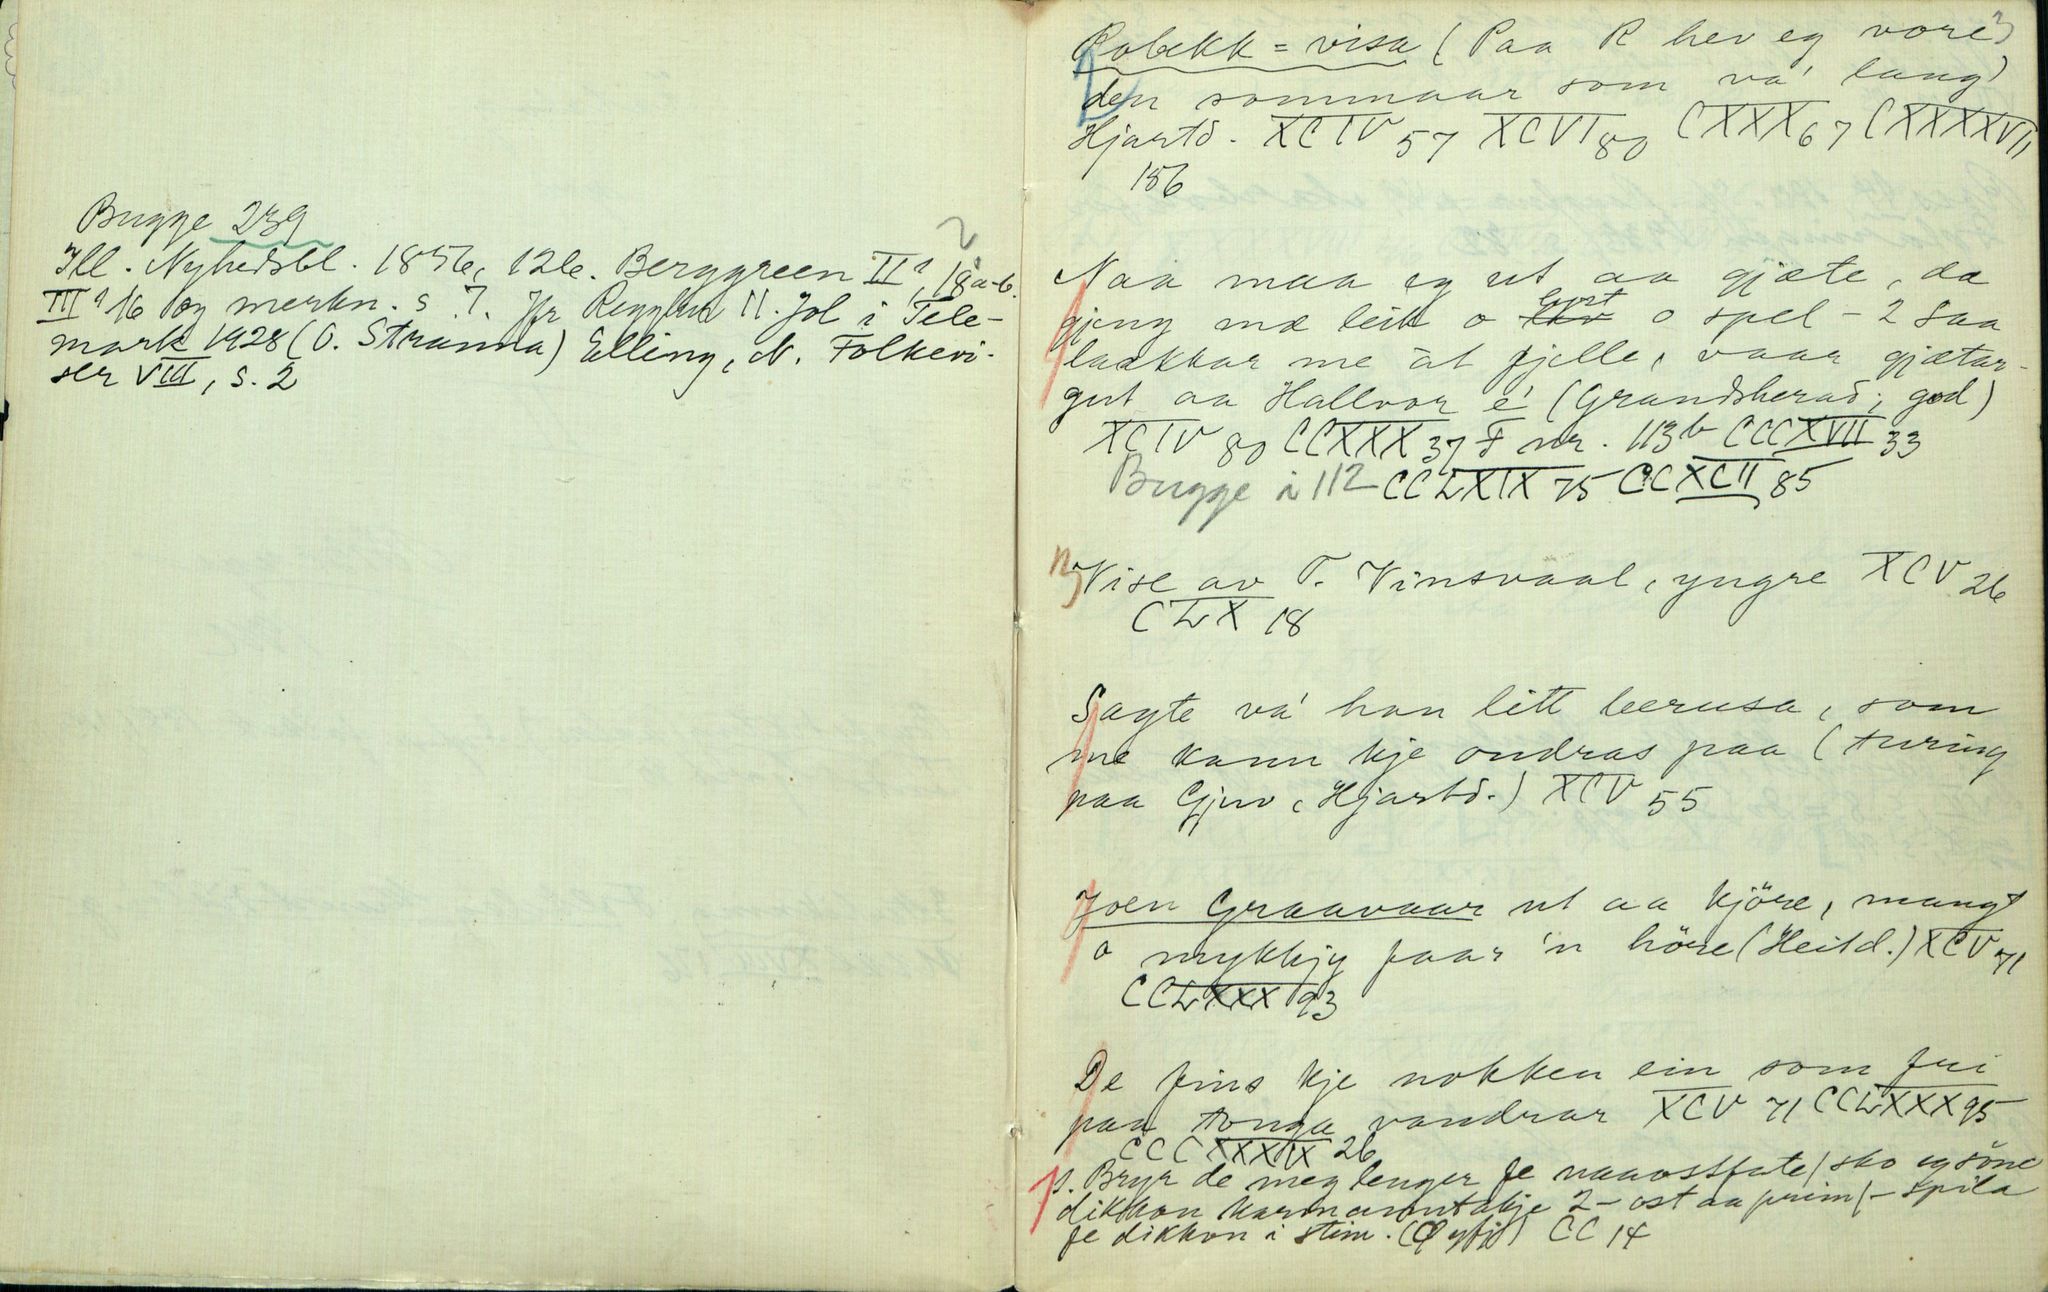 Bugge 239
Ill. Nyhedsbl. 1856, 126. Berggreen II², 18a-b.
III² 16 og merkn. s 7. Jfr Rigglun 11. Jol i Tele-
mark 1928 (O. Stranna) Elling, N. Folkevi-
ser VIII, s. 2
Robekk = visa (Paa R hev eg vore,
den sommaar som va' lang)
Hjartd. XCIV 57 XCVI 80 CXXX 67 CXXXXVII
186
Naa maa eg ut aa gjæte, da
gjeng mæ leik o lyst o spel - 2 Saa
lakkar me at fjelle, vaar gjætar-
gut aa Hallvor é (Grandsherad; god)
XCIV 80 CCXXX 37 F nr. 113 b CCCXVII 33
Bugge i 112 CCLXIX 75 CCXCII 85
Vise av T. Vinsvaal, yngre XCV 26
CLX 18
Sagte va' han litt beerusa, som
me kann kje ondras paa (turing
paa Gjuv, Hjartd.) XCV 55
Joen Graavaar ut aa kjöre, mangt
o mykkjy faar 'n höre (Heitd.) XCV 71
CCLXXX 93
De fins kje nokken ein som fri
paa tonga vandrar XCV 71 CCLXXX 95
CCCXXXIX 26
s. Bryr de meg lenger fe naaostfate / sko eg söne
dikkon 2 - ost aa prim / - spila
fe dikkon i stim. CC 14